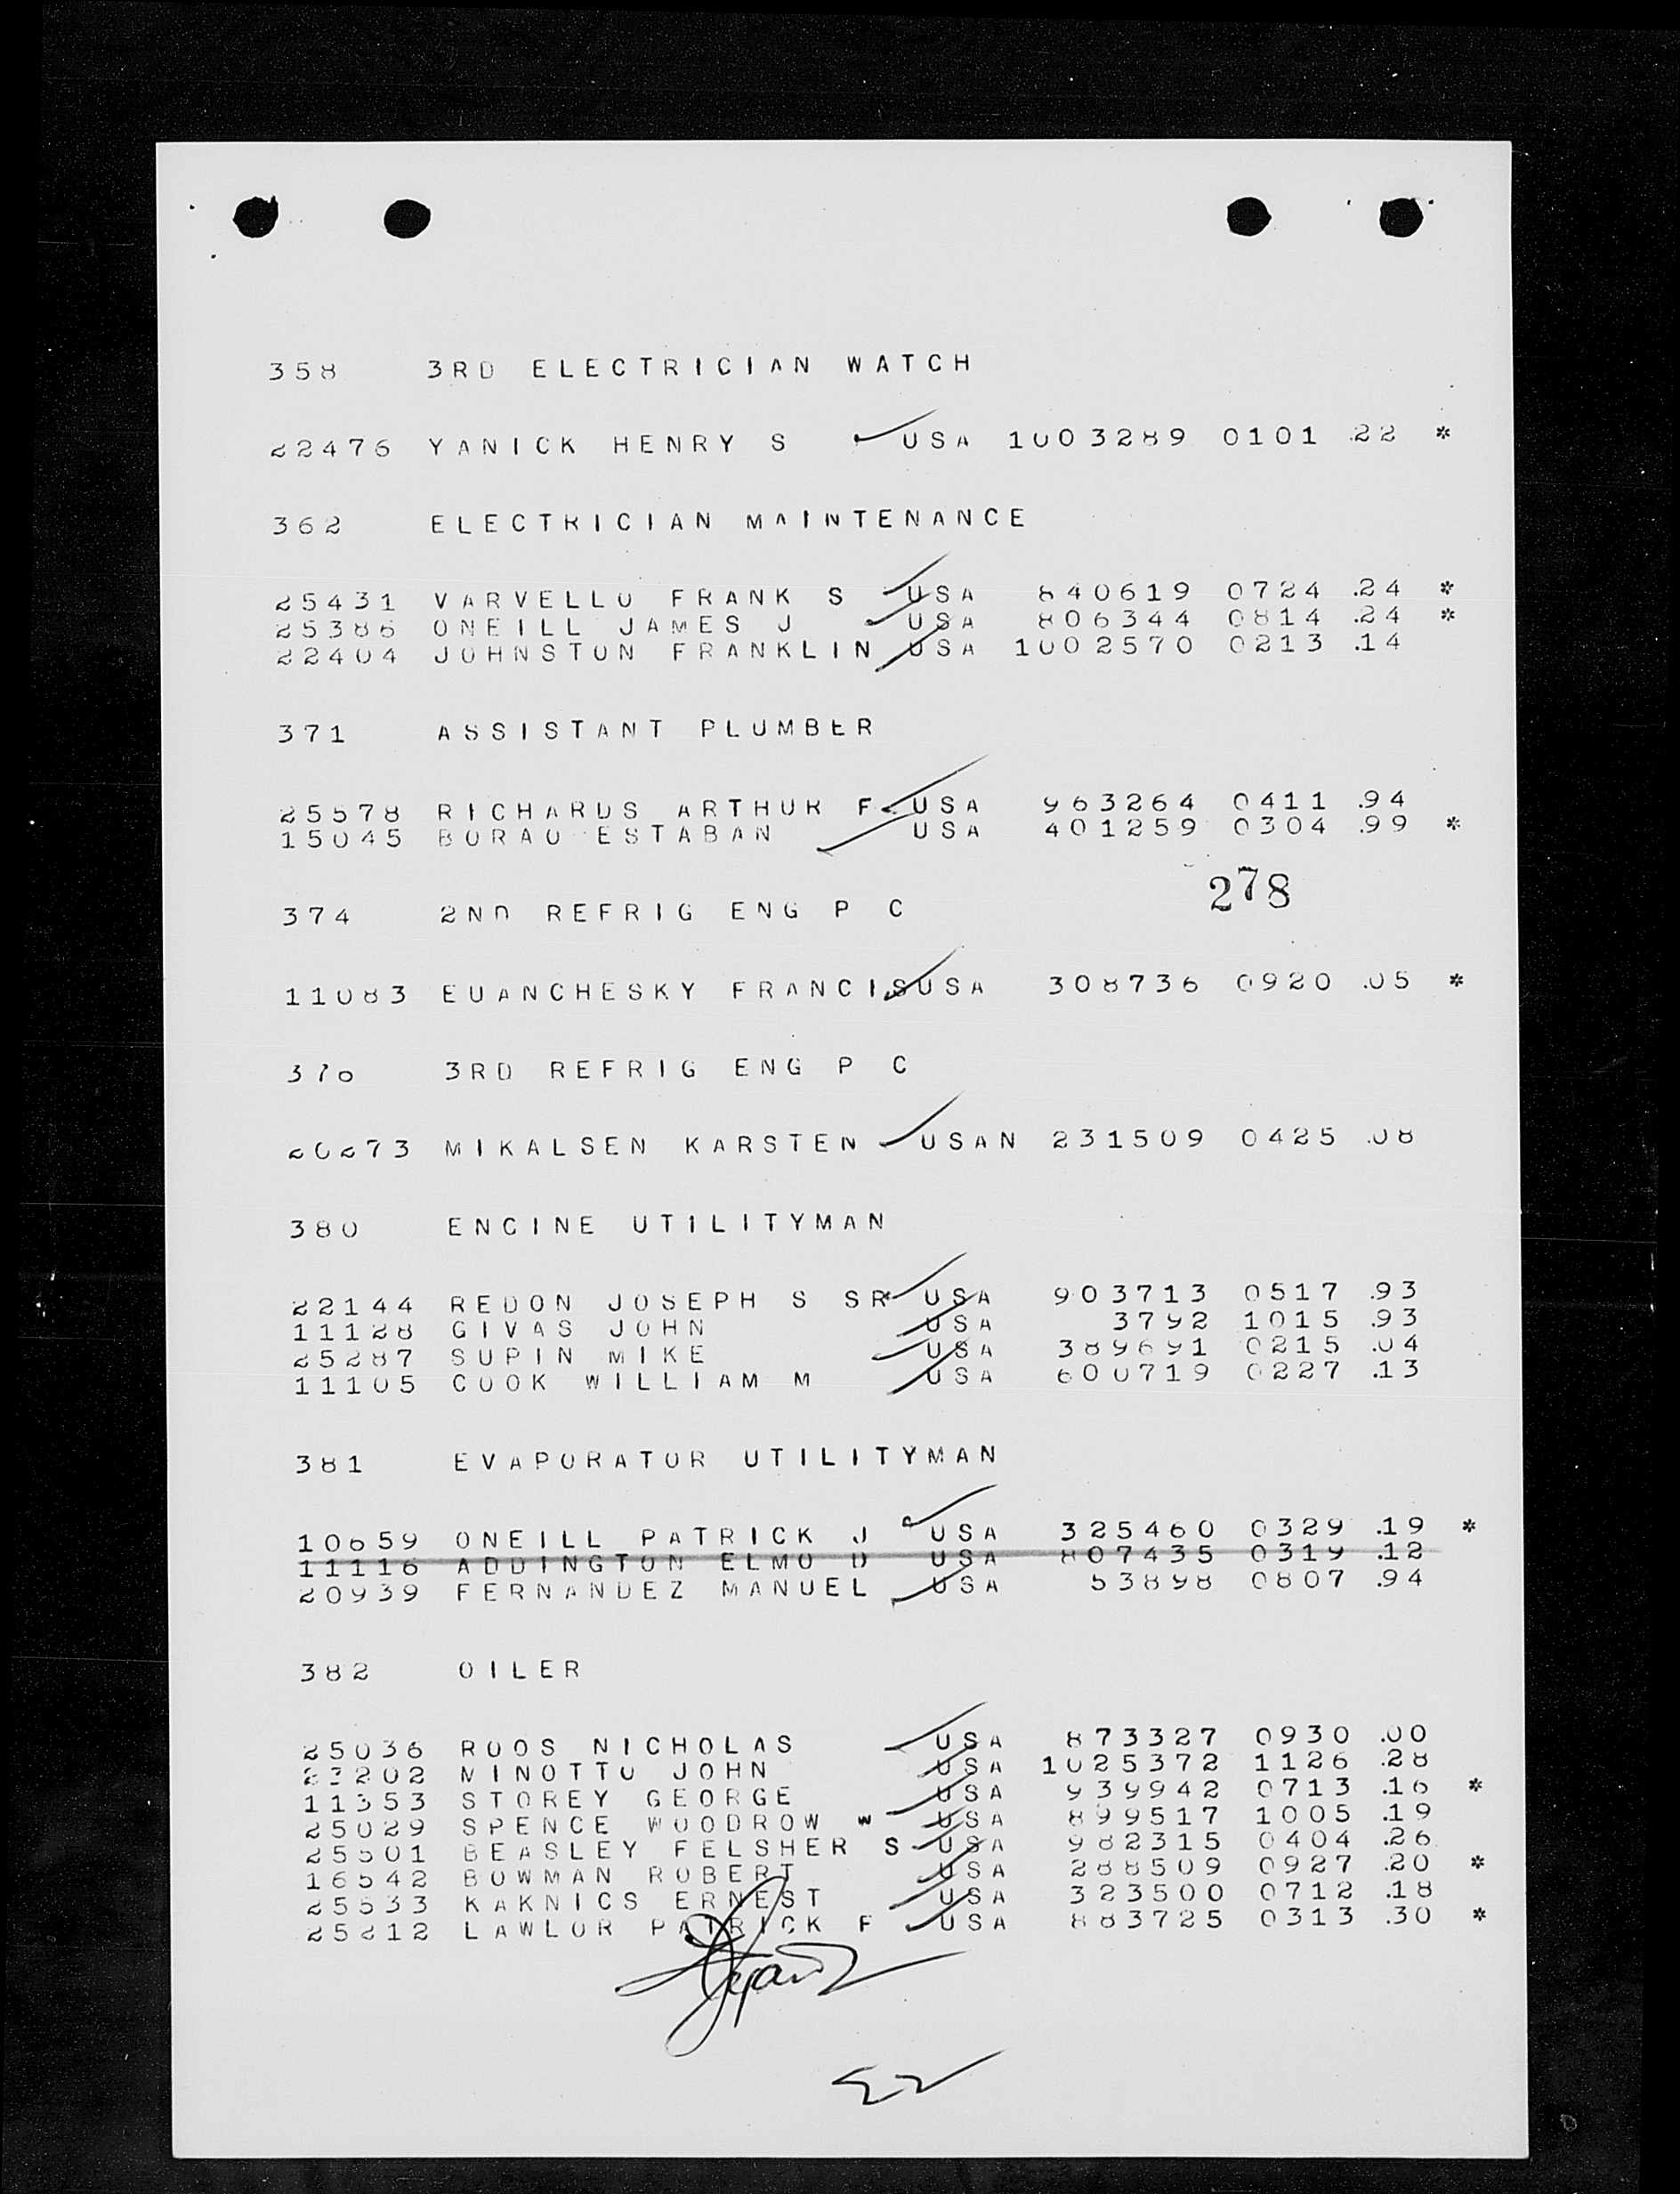 358 3RD ELECTRICIAN WATCH
22476 YANICK HENRY S USA 1003289 0101 .22 *
362 ELECTRICIAN MAINTENANCE
25431 VARVELLO FRANK S USA 840619 0724 .24 *
25386 ONEILL JAMES J USA 806344 0814 .24 *
22404 JOHNSTON FRANKLIN USA 1002570 0213 .14
371 ASSISTANT PLUMBER
25578 RICHARDS ARTHUR F USA 963264 0411 .94
15045 BORAO ESTABAN USA 401259 0304 .99 *
278
374 2ND REFRIG ENG P C
11083 EUANCHESKY FRANCIS USA 308736 0920 .05 *
376 3RD REFRIG ENG P C
20273 MIKALSEN KARSTEN USAN 231509 0425 .08
380 ENGINE UTILITYMAN
22144 REDON JOSEPH S SR USA 903713 0517 .93
11128 GIVAS JOHN USA 3792 1015 .93
25287 SUPIN MIKE USA 389691 0215 .04
11105 COOK WILLIAM M USA 600719 0227 .13
381 EVAPORATOR UTILITYMAN
10659 ONEILL PATRICK J USA 325460 0329 .19 *
11116 ADDINGTON ELMO D USA 807435 0319 .12
20939 FERNANDEZ MANUEL USA 53898 0807 .94
382 OILER
25036 ROOS NICHOLAS USA 873327 0930 .00
23202 MINOTTO JOHN USA 1025372 1126 .28
11353 STOREY GEORGE USA 939942 0713 .16 *
25029 SPENCE WOODROW W USA 899517 1005 .19
25501 BEASLEY FELSHER S USA 982315 0404 .26
16542 BOWMAN ROBERT USA 288509 0927 .20 *
25533 KAKNICS ERNEST USA 323500 0712 .18
25212 LAWLOR PATRICK F USA 883725 0313 .30 *